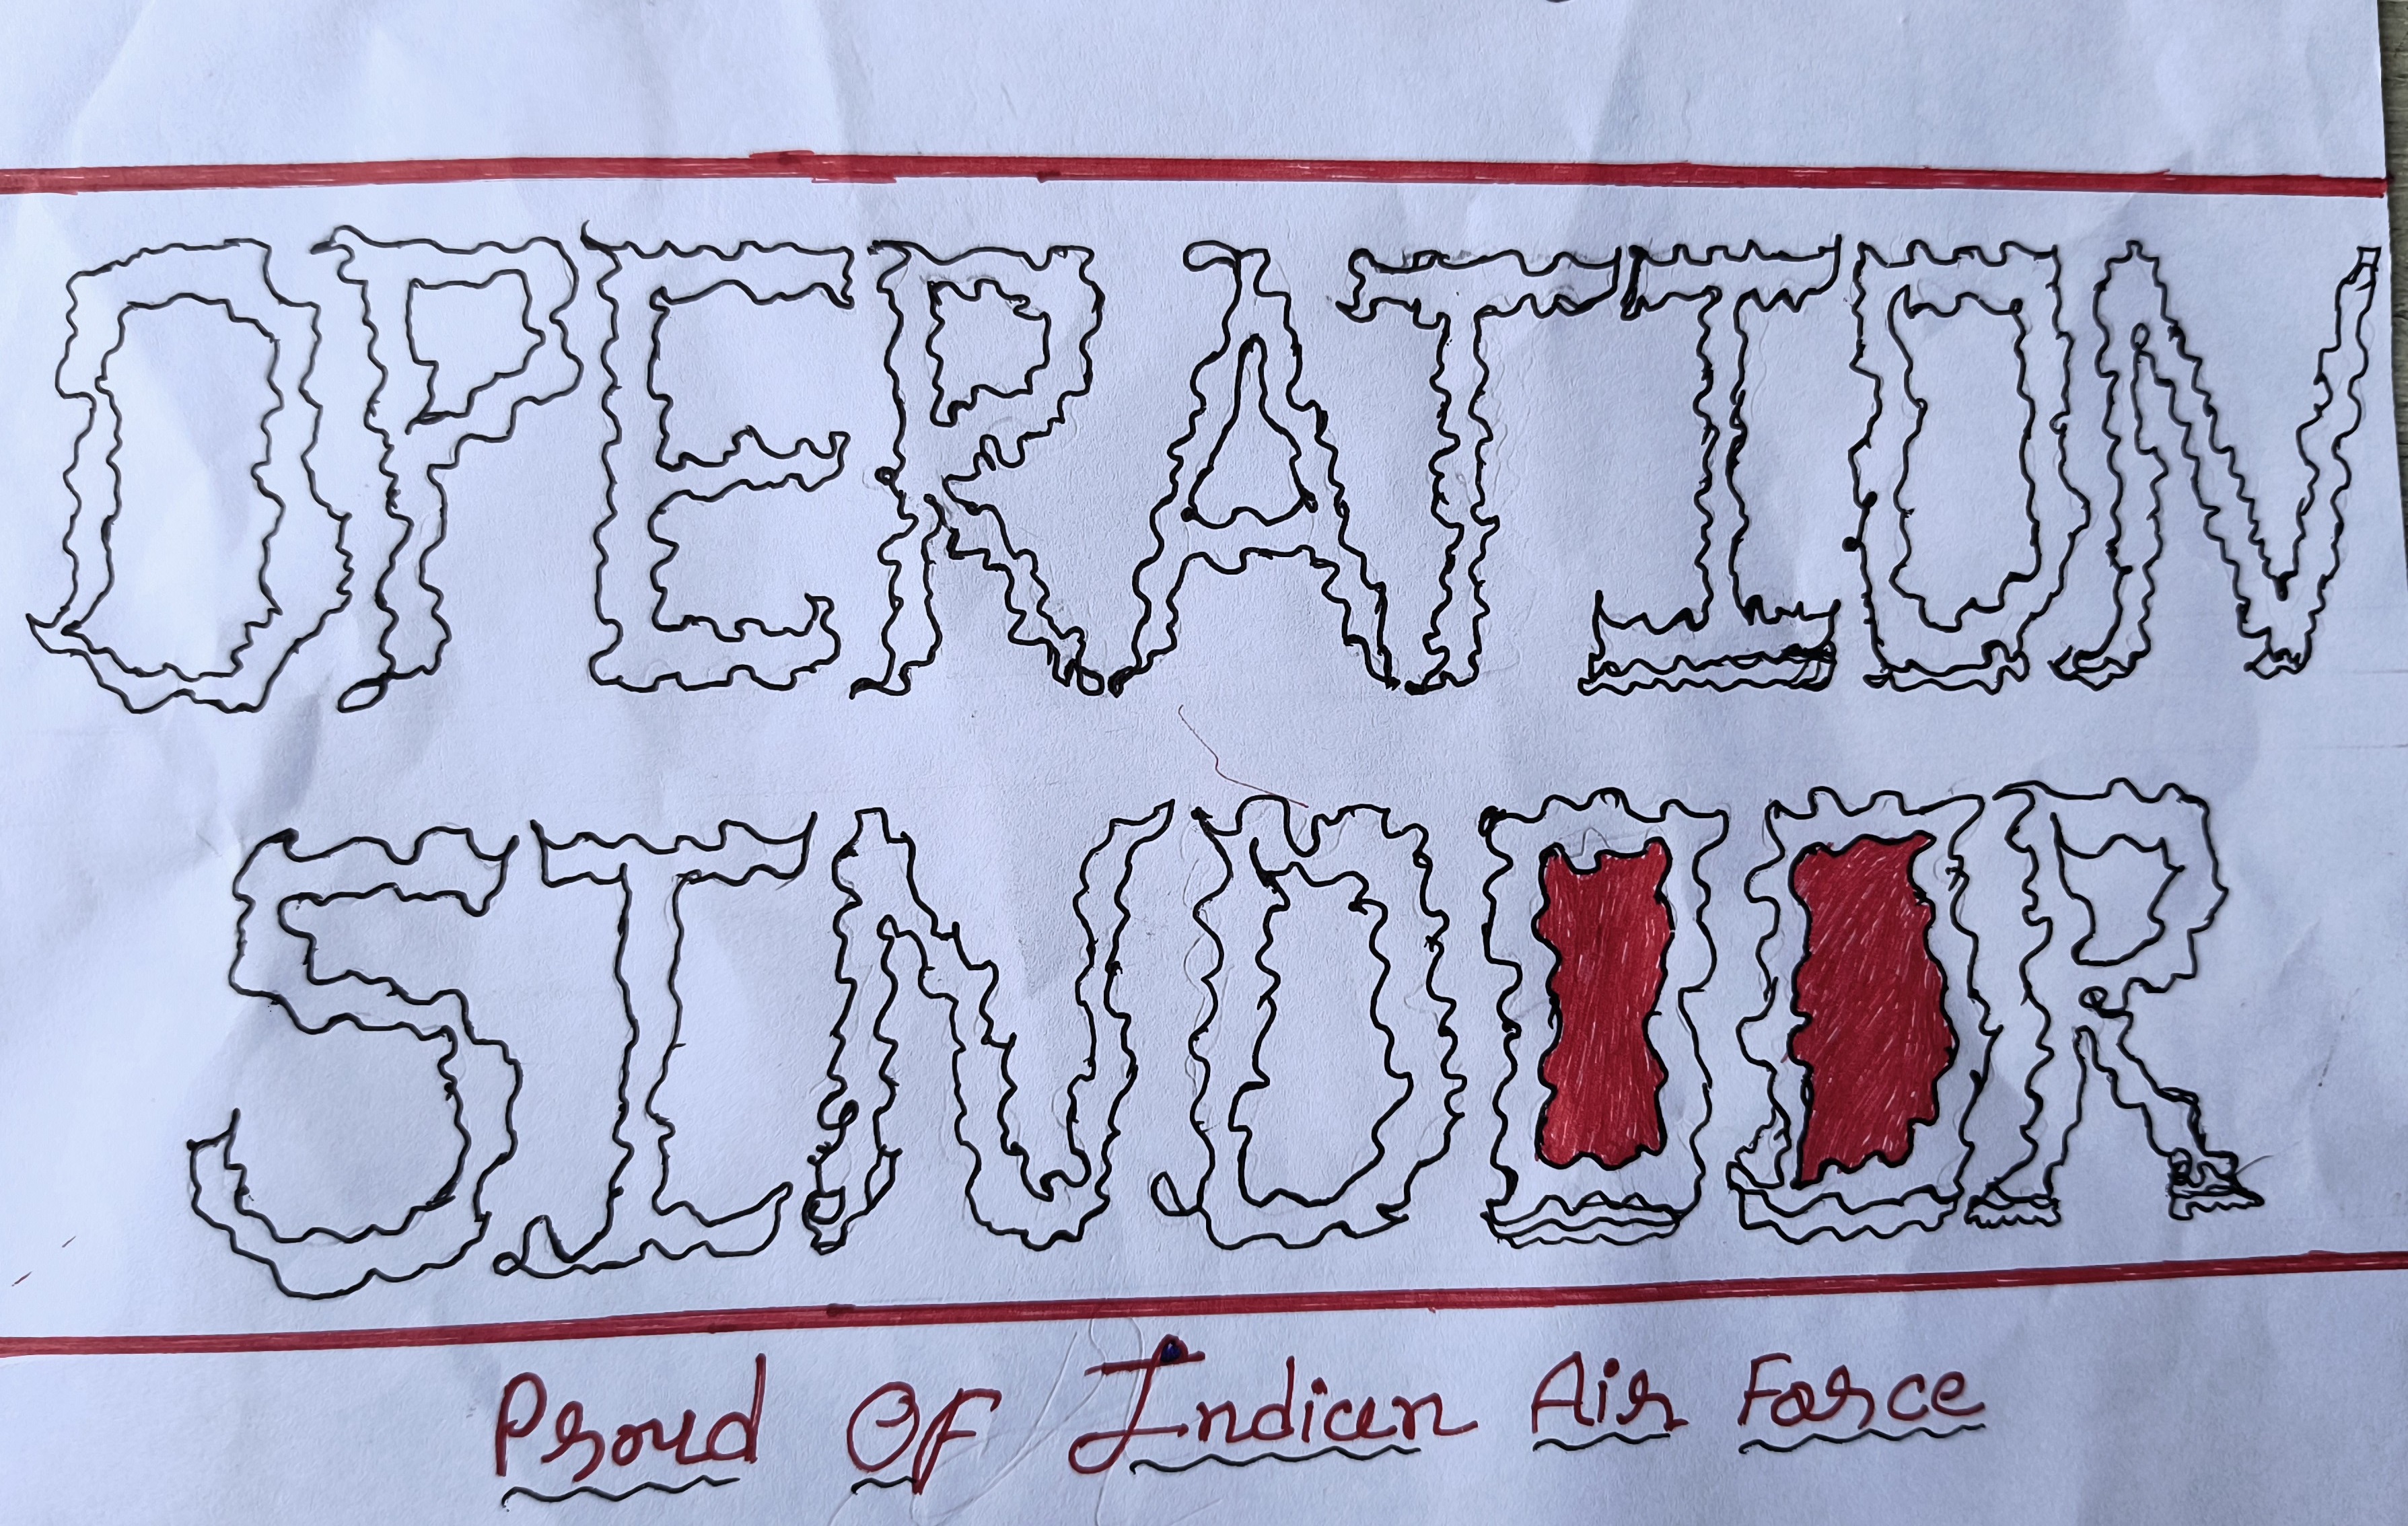 OPERATION
SINDOOR
Proud Of Indian Air Force